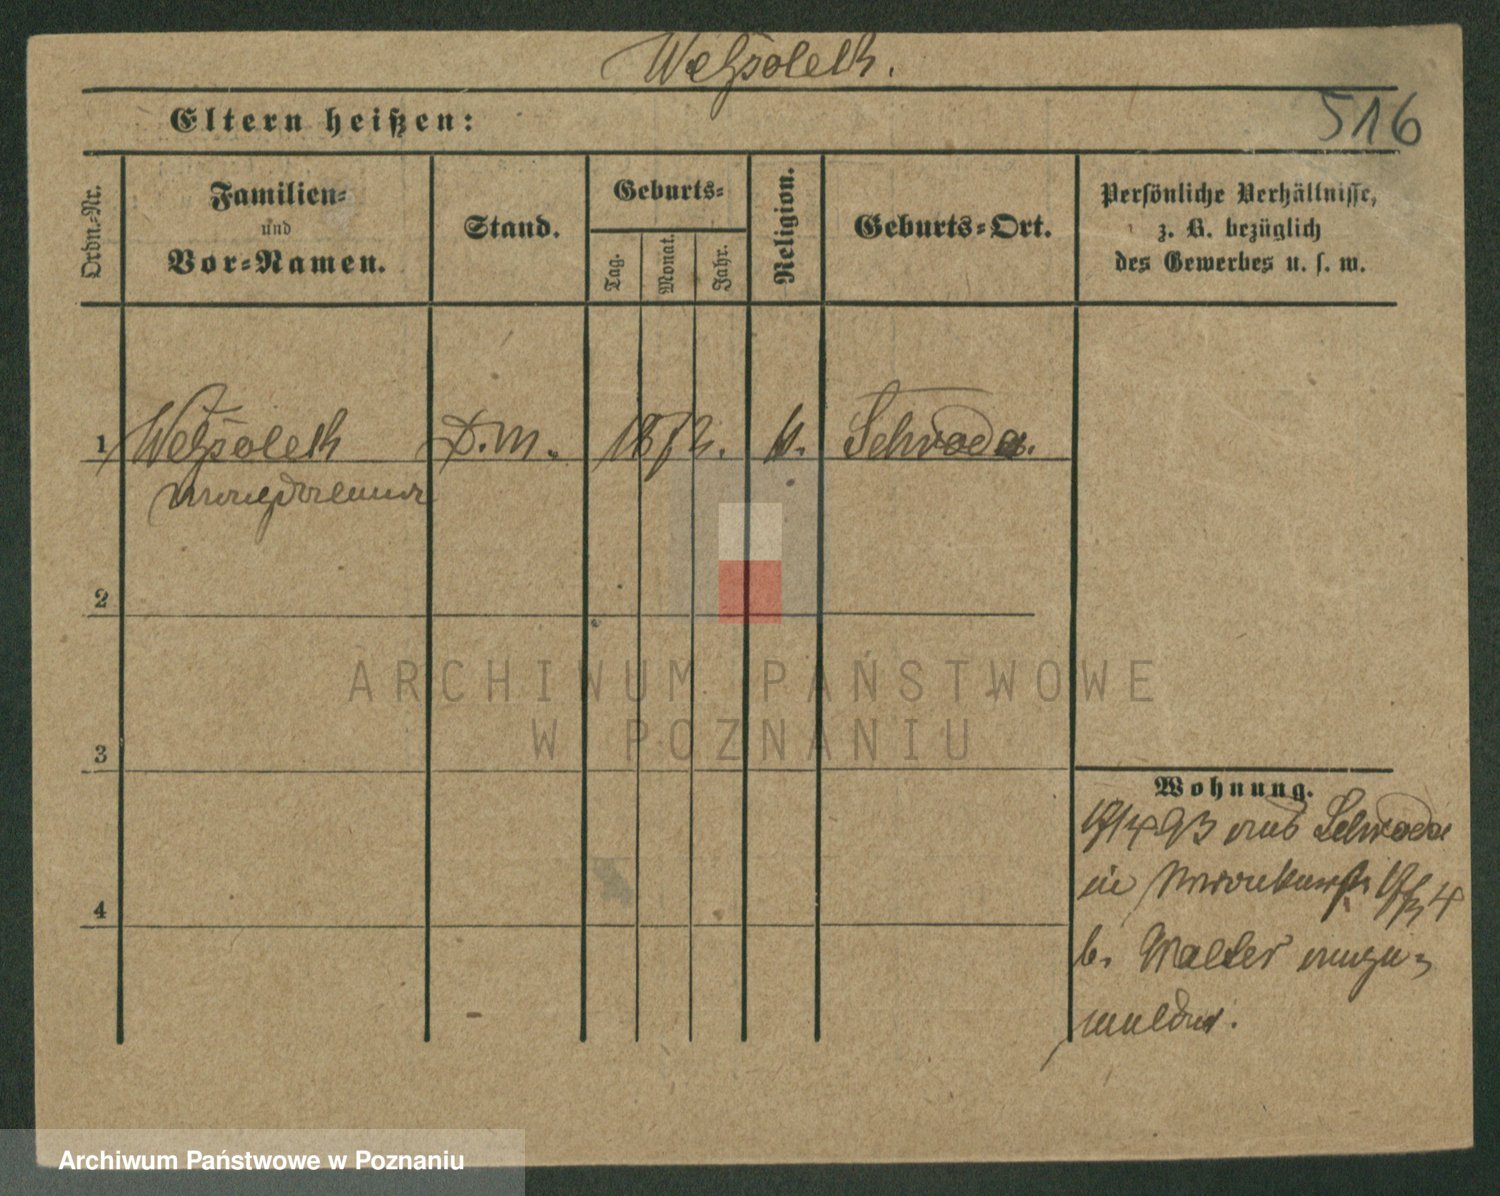 516
Eltern heißen:
Ordn.-Nr.
Familien-
und
Vor-Namen.
Stand.
Geburts-
Tag.
Monat.
Jahr.
Religion.
Geburts-Ort.
Persönliche Verhältnisse,
z. B. bezüglich
des Gewerbes u. s. w.
1 D.M. k. Schroda.
2
3
4
Wohnung.
93 aus Schroda
in
b. Walter ange-
meldet.
ARCHIWUM PAŃSTWOWE
W POZNANIU
Archiwum Państwowe w Poznaniu